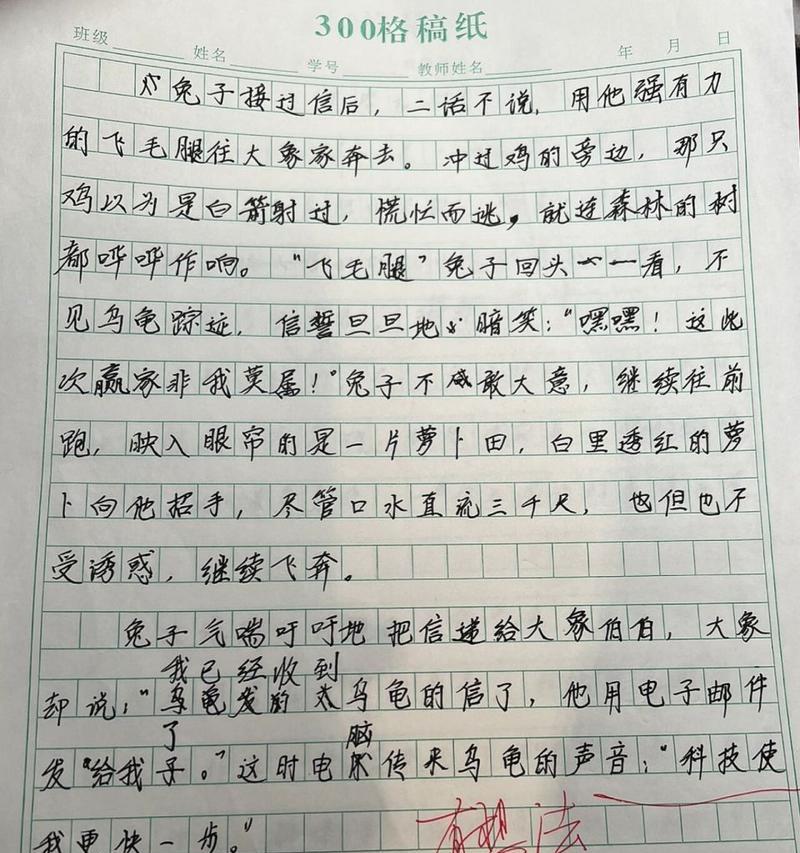 300格稿纸
班级 姓名 学号 教师姓名 年 月 日
兔子接过信后，二话不说，用他强有力
的飞毛腿往大象家奔去。冲过鸡的旁边，那只
鸡以为是白箭射过，慌忙而逃，就连森林的树
都哗哗作响。“飞毛腿”兔子回头一看，不
见乌龟踪迹，信誓旦旦地暗笑：“嘿嘿！这此
次赢家非我莫属！”兔子不敢大意，继续往前
跑，映入眼帘的是一片萝卜田，白里透红的萝
卜向他招手，尽管口水直流三千尺，但也不
受诱惑，继续飞奔。
兔子气喘吁吁地把信递给大象伯伯，大象
我已经收到
却说：“乌龟的信了，他用电子邮件
了 脑
发给我。”这时电传来乌龟的声音：“科技使
我更快一步。”
有想法